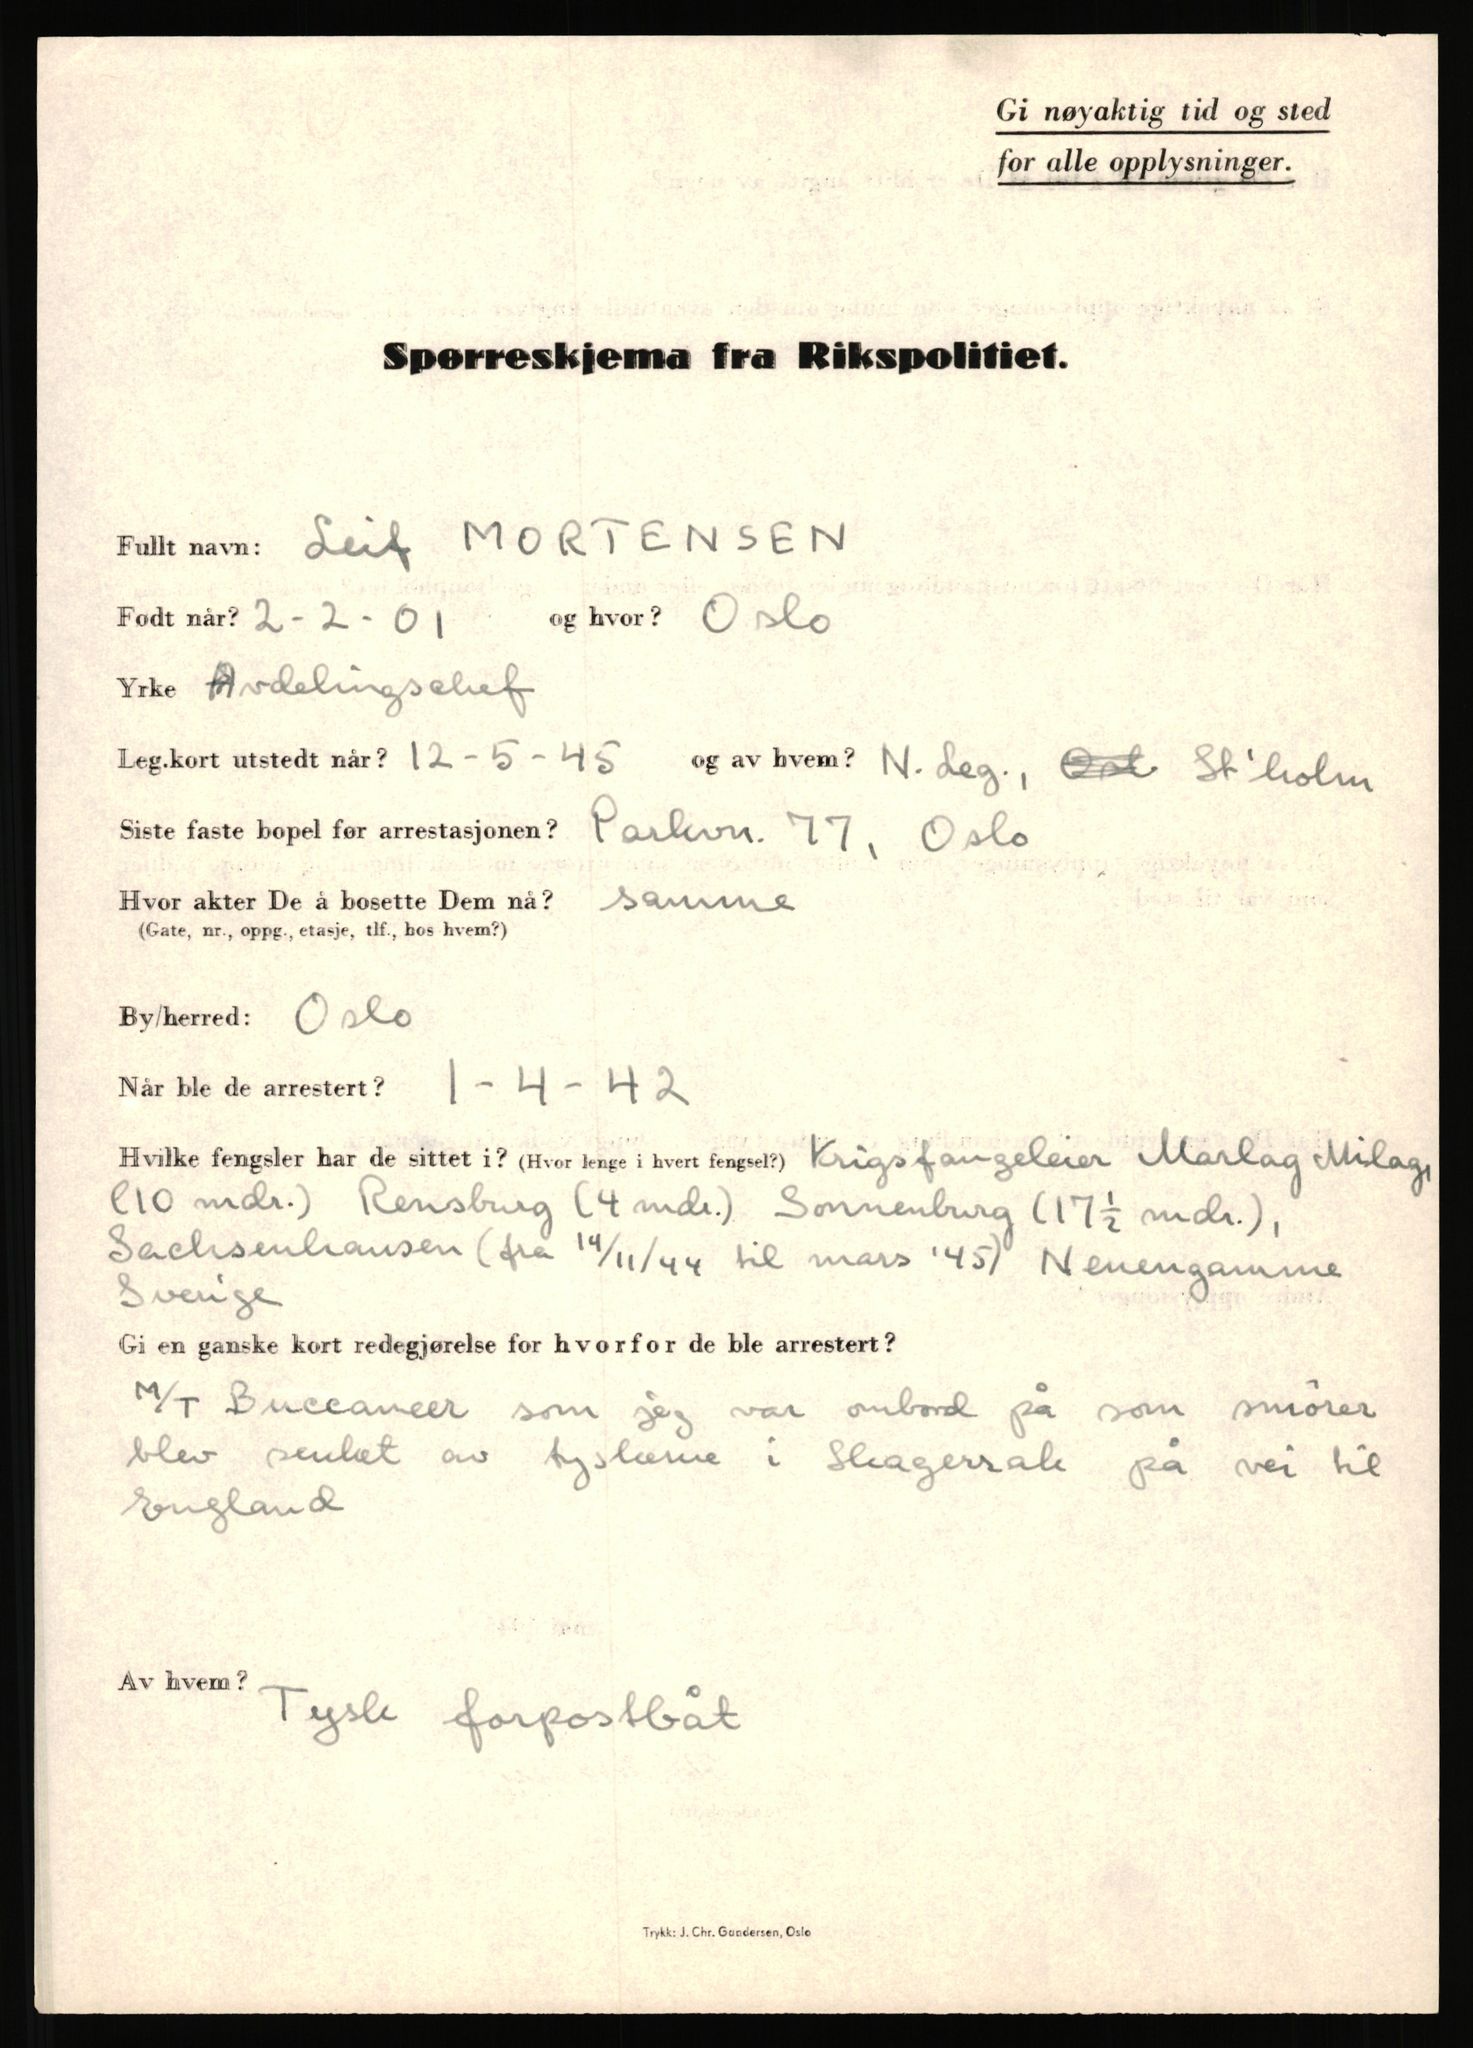 Gi nøyaktig tid og sted
for alle opplysninger.
Spørreskjema fra Rikspolitiet.
Fullt navn: Leif MORTENSEN
Født når? 2-2-01 og hvor? Oslo
Yrke Avdelingschef
Leg.kort utstedt når? 12-5-45 og av hvem? N. Leg., St'holm
Siste faste bopel før arrestasjonen? Parkvn. 77, Oslo
Hvor akter De å bosette Dem nå? samme
(Gate, nr., oppg., etasje, tlf., hos hvem?)
By/herred: Oslo
Når ble de arrestert? 1-4-42
Hvilke fengsler har de sittet i? (Hvor lenge i hvert fengsel?) Krigsfangeleier Marlag Milag,
(10 mdr.) Rensburg (4 mdr.) Sonnenburg (17 1/2 mdr.),
Sachsenhausen (fra 14/11/44 til mars '45) Nenengamme
Sverige
Gi en ganske kort redegjørelse for hvorfor de ble arrestert?
M/T Buccaneer som jeg var ombord på som smörer
blev senket av tyskerne i Skagerrak på vei til
England
Av hvem? Tysk forpostbåt
Trykk: J. Chr. Gundersen, Oslo